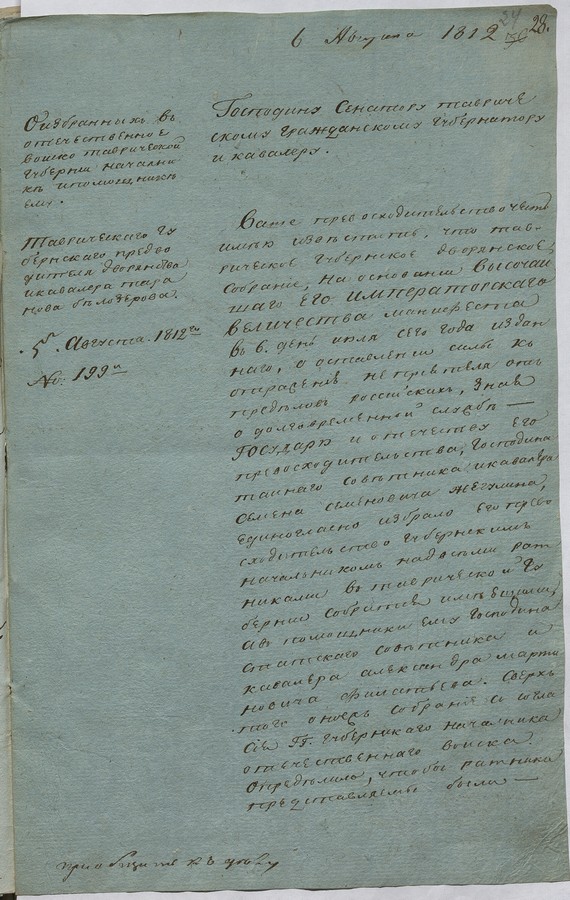 6 Августа 1812
28.
О избранныхъ въ
отечественное
войско таврической
губернии начальни
кѣ и помощникѣ
ему.
Таврическаго гу
бернскаго предво
дителя дворянства
и кавалера тара
нова бѣлозерова.
5го Августа. 1812го
No: 199й
Господину Сенатору тавриче
скому гражданскому губернатору
и кавалеру.
Ваше превосходительство честь
имѣю извѣстить, что тав-
рическое губернское дворянское
собрание, на основании Высочай
шаго Его Императорскаго
Величества манифеста
въ 6. день июля сего года издан
наго, о составлении силы къ
отражению неприятеля отъ
предѣловъ российскихъ, зная
о долговременной службѣ —
Государю и отечеству Его
превосходительства, Господина
тайнаго совѣтника и кавалера
Семена Семеновича Жегулина,
единогласно избрало его прево
сходительство губернскимъ
начальникомъ надъ всѣми рат
никами въ таврической гу
бернии собратся имѣющими,
а въ помощники ему Господина
статскаго совѣтника и
кавалера александра марты
новича Филатьева. Сверхъ
того оноежъ собрание съ согла
сия ГГ. губернскаго начальника
отечественнаго войска
опредѣлило, чтобы ратники
представляемы были —
приобщить къ дѣлу